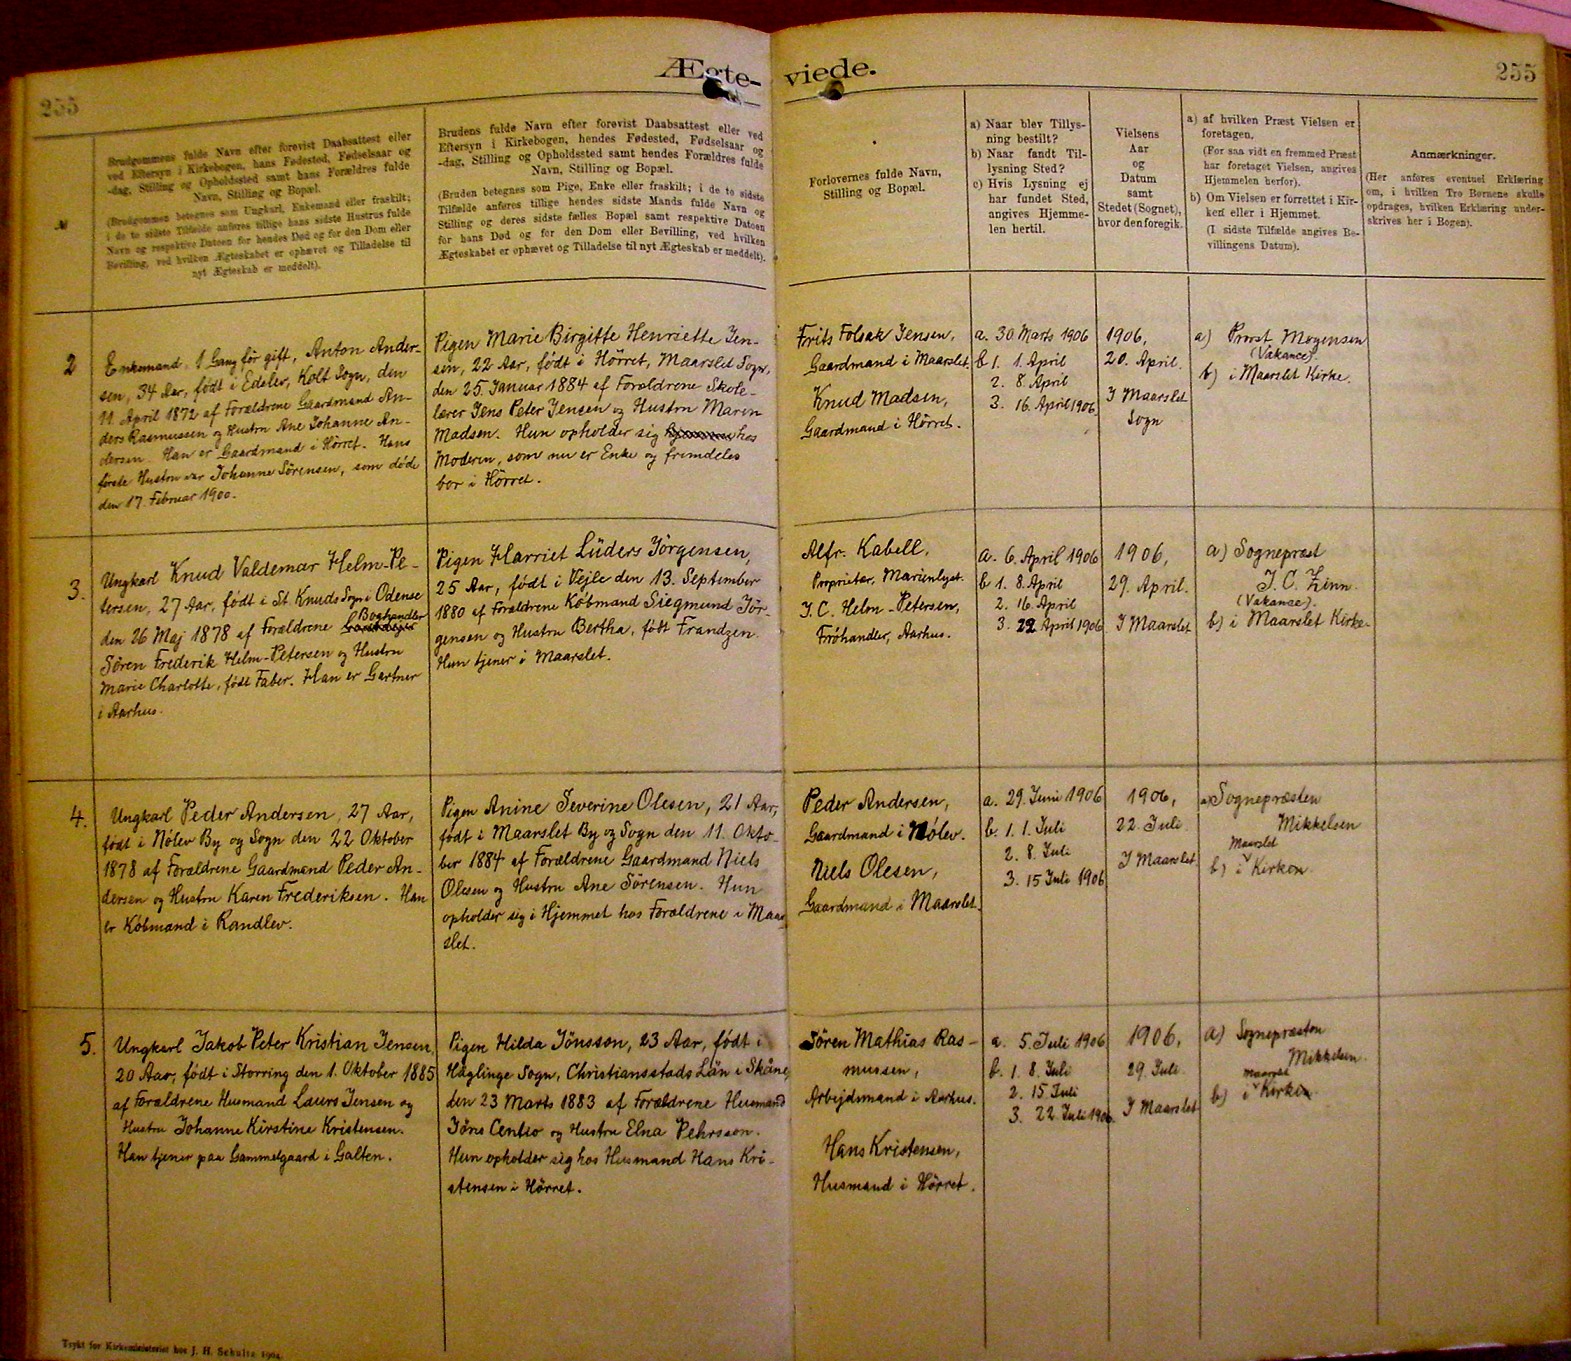 255
Ægte-
viede.
255
№
Brudgommens fulde Navn efter forevist Daabsattest eller
ved Eftersyn i Kirkebogen, hans Fødested, Fødselsaar og
-dag, Stilling og Opholdssted samt hans Forældres fulde
Navn, Stilling og Bopæl.
(Brudgommen betegnes som Ungkarl, Enkemand eller fraskilt;
i de to sidste Tilfælde anføres tillige hans sidste Hustrus fulde
Navn og respektive Datoen for hendes Død og for den Dom eller
Bevilling, ved hvilken Ægteskabet er ophævet og Tilladelse til
nyt Ægteskab er meddelt).
Brudens fulde Navn efter forevist Daabsattest eller ved
Eftersyn i Kirkebogen, hendes Fødested, Fødselsaar og
-dag, Stilling og Opholdssted samt hendes Forældres fulde
Navn, Stilling og Bopæl.
(Bruden betegnes som Pige, Enke eller fraskilt; i de to sidste
Tilfælde anføres tillige hendes sidste Mands fulde Navn og
Stilling og deres sidste fælles Bopæl samt respektive Datoen
for hans Død og for den Dom eller Bevilling, ved hvilken
Ægteskabet er ophævet og Tilladelse til nyt Ægteskab er meddelt).
Forlovernes fulde Navn,
Stilling og Bopæl.
a) Naar blev Tillys-
ning bestilt?
b) Naar fandt Til-
lysning Sted?
c) Hvis Lysning ej
har fundet Sted,
angives Hjemme-
len hertil.
Vielsens
Aar
og
Datum
samt
Stedet (Sognet),
hvor den foregik.
a) af hvilken Præst Vielsen er
foretagen.
(For saa vidt en fremmed Præst
har foretaget Vielsen, angives
Hjemmelen herfor).
b) Om Vielsen er forrettet i Kir-
ken eller i Hjemmet.
(I sidste Tilfælde angives Be-
villingens Datum).
Anmærkninger.
(Her anføres eventuel Erklæring
om, i hvilken Tro Børnene skulle
opdrages, hvilken Erklæring under-
skrives her i Bogen).
2
Enkemand, 1 Gang før gift, Anton Ander-
sen, 34 Aar, født i Edslev, Kolt Sogn, den
11. April 1872 af Forældrene Gaardmand An-
ders Rasmussen og Hustru Ane Johanne An-
dersen. Han er Gaardmand i Hörret. Hans
første Hustru var Johanne Sörensen, som døde
den 17. Februar 1900.
Pigen Marie Birgitte Henriette Jen-
sen, 22 Aar, født i Hörret, Maarslet Sogn,
den 25. Januar 1884 af Forældrene Skole-
lærer Jens Peter Jensen og Hustru Maren
Madsen. Hun opholder sig hos
Moderen, som nu er Enke og fremdeles
bor i Hörret.
Frits Folsak Jensen,
Gaardmand i Maarslet.
Knud Madsen,
Gaardmand i Hörret.
a. 30 Marts 1906
b 1. 1. April
2. 8. April
3. 16. April 1906
1906,
20. April.
I Maarslet
Sogn
a) Provst Mogensen
(Vakance).
b) i Maarslet Kirke.
3.
Ungkarl Knud Valdemar Helm-Pe-
tersen, 27 Aar, født i St. Knuds Sogn i Odense
den 26 Maj 1878 af Forældrene Boghandler
Sören Frederik Helm-Petersen og Hustru
Marie Charlotte, født Faber. Han er Gartner
i Aarhus.
Pigen Harriet Lüders Jörgensen,
25 Aar, født i Vejle den 13. September
1880 af Forældrene Köbmand Siegmund Jör-
gensen og Hustru Bertha, født Frandzen.
Hun tjener i Maarslet.
Alfr. Kabell,
Proprietær, Marienlyst.
J. C. Helm-Petersen,
Fröhandler, Aarhus.
a. 6. April 1906
b 1. 8. April
2. 16. April
3. 22 April 1906
1906,
29. April.
I Maarslet
a) Sognepræst
J. C. Zinn
(Vakance).
b) i Maarslet Kirke.
4.
Ungkarl Peder Andersen, 27 Aar,
født i Nölev By og Sogn den 22 Oktober
1878 af Forældrene Gaardmand Peder An-
dersen og Hustru Karen Frederiksen. Han
er Köbmand i Randlev.
Pigen Anine Severine Olesen, 21 Aar,
født i Maarslet By og Sogn den 11. Okto-
ber 1884 af Forældrene Gaardmand Niels
Olesen og Hustru Ane Sörensen. Hun
opholder sig i Hjemmet hos Forældrene i Maar
slet.
Peder Andersen,
Gaardmand i Nölev.
Niels Olesen,
Gaardmand i Maarslet.
a. 29. Juni 1906
b. 1. 1. Juli
2. 8. Juli
3. 15 Juli 1906
1906,
22. Juli
I Maarslet
a) Sognepræsten
Mikkelsen
Maarslet
b) i Kirken.
5.
Ungkarl Jakob Peter Kristian Jensen,
20 Aar, født i Storring den 1. Oktober 1885
af Forældrene Husmand Laurs Jensen og
Hustru Johanne Kirstine Kristensen.
Han tjener paa Gammelgaard i Galten.
Pigen Hilda Jönsson, 23 Aar, født i
Häglinge Sogn, Christiansstads Län i Skåne,
den 23 Marts 1883 af Forældrene Husmand
Jöns Centio og Hustru Elna Pehrsson.
Hun opholder sig hos Husmand Hans Kri-
stensen i Hörret.
Sören Mathias Ras-
mussen,
Arbejdsmand i Aarhus.
Hans Kristensen,
Husmand i Hörret.
a. 5. Juli 1906
b. 1. 8. Juli
2. 15. Juli
3. 22. Juli 1906.
1906,
29. Juli
I Maarslet
a) Sognepræsten
Mikkelsen.
Maarslet
b) i Kirken
Trykt for Kirkeministeriet hos J. H. Schultz 1904.